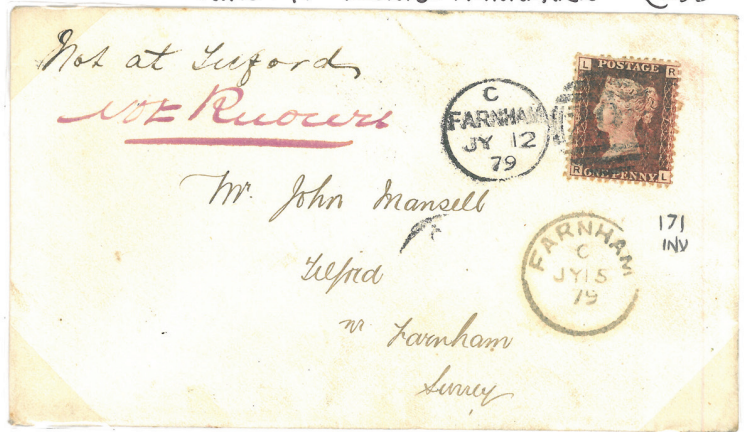 Not at Tilford
not Known
C
FARNHAM
JY 12
79
L POSTAGE R
R ONE PENNY L
Mr. John Mansell
Tilford
nr Farnham
Surrey
FARNHAM
C
JY 15
79
171
INV